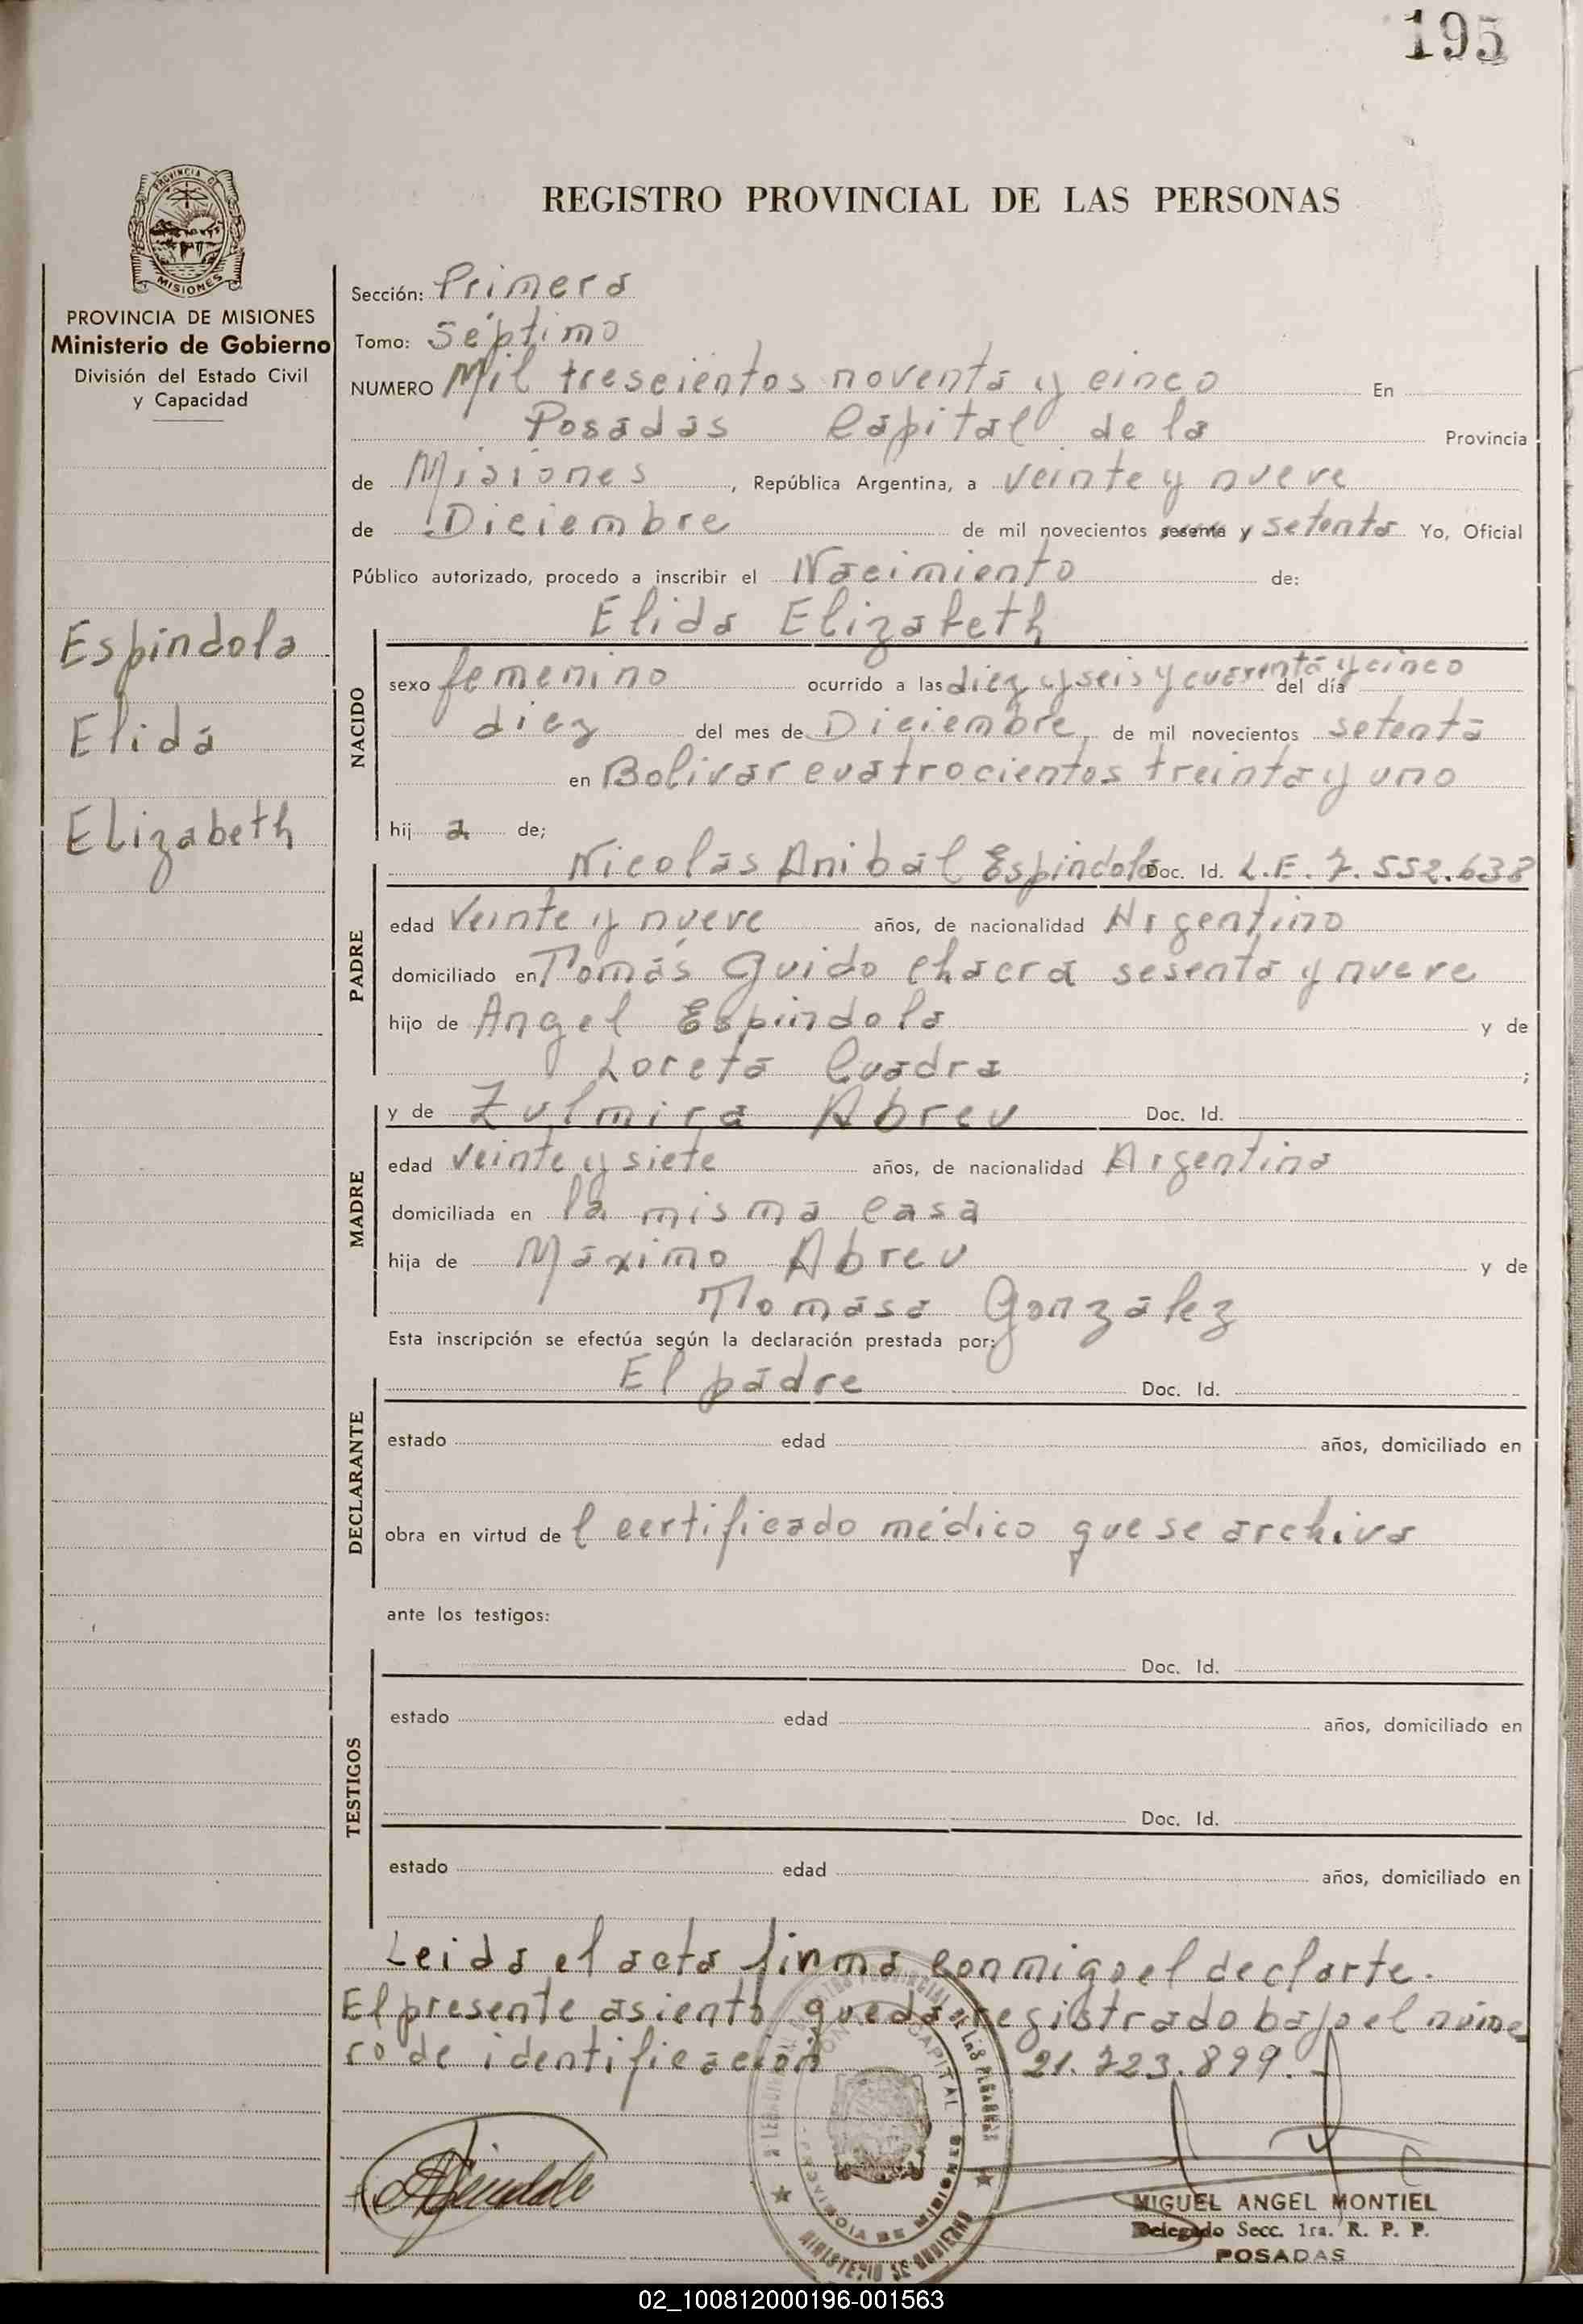 195
PROVINCIA DE
MISIONES
REGISTRO PROVINCIAL DE LAS PERSONAS
PROVINCIA DE MISIONES
Ministerio de Gobierno
División del Estado Civil
y Capacidad
Espindola
Elida
Elizabeth
Sección: Primera
Tomo: Séptimo
NUMERO Mil trescientos noventa y cinco En
Posadas Capital de la Provincia
de Misiones, República Argentina, a veinte y nueve
de Diciembre de mil novecientos sesenta y setenta Yo, Oficial
Público autorizado, procedo a inscribir el Nacimiento de:
Elida Elizabeth
NACIDO
sexo femenino ocurrido a las diez y seis y cuarenta y cinco del día
diez del mes de Diciembre de mil novecientos setenta
en Bolivar cuatrocientos treinta y uno
hij a de;
PADRE
Nicolas Anibal Espindola Doc. Id. L.E. 7.552.638
edad veinte y nueve años, de nacionalidad Argentino
domiciliado en Tomás Guido chacra sesenta y nueve
hijo de Angel Espindola y de
Loreta Cuadra ;
MADRE
y de Zulmira Abreu Doc. Id.
edad veinte y siete años, de nacionalidad Argentina
domiciliada en la misma casa
hija de Máximo Abreu y de
Tomasa González
Esta inscripción se efectúa según la declaración prestada por:
DECLARANTE
El padre Doc. Id.
estado edad años, domiciliado en
obra en virtud de l certificado médico que se archiva
ante los testigos:
TESTIGOS
Doc. Id.
estado edad años, domiciliado en
Doc. Id.
estado edad años, domiciliado en
Leida el acta firma conmigo el declarte.
El presente asiento queda registrado bajo el núme
ro de identificación 21.723.899.-
MIGUEL ANGEL MONTIEL
Delegado Secc. 1ra. R. P. P.
POSADAS
PROVINCIA DE MISIONES
MINISTERIO DE GOBIERNO
02_100812000196-001563